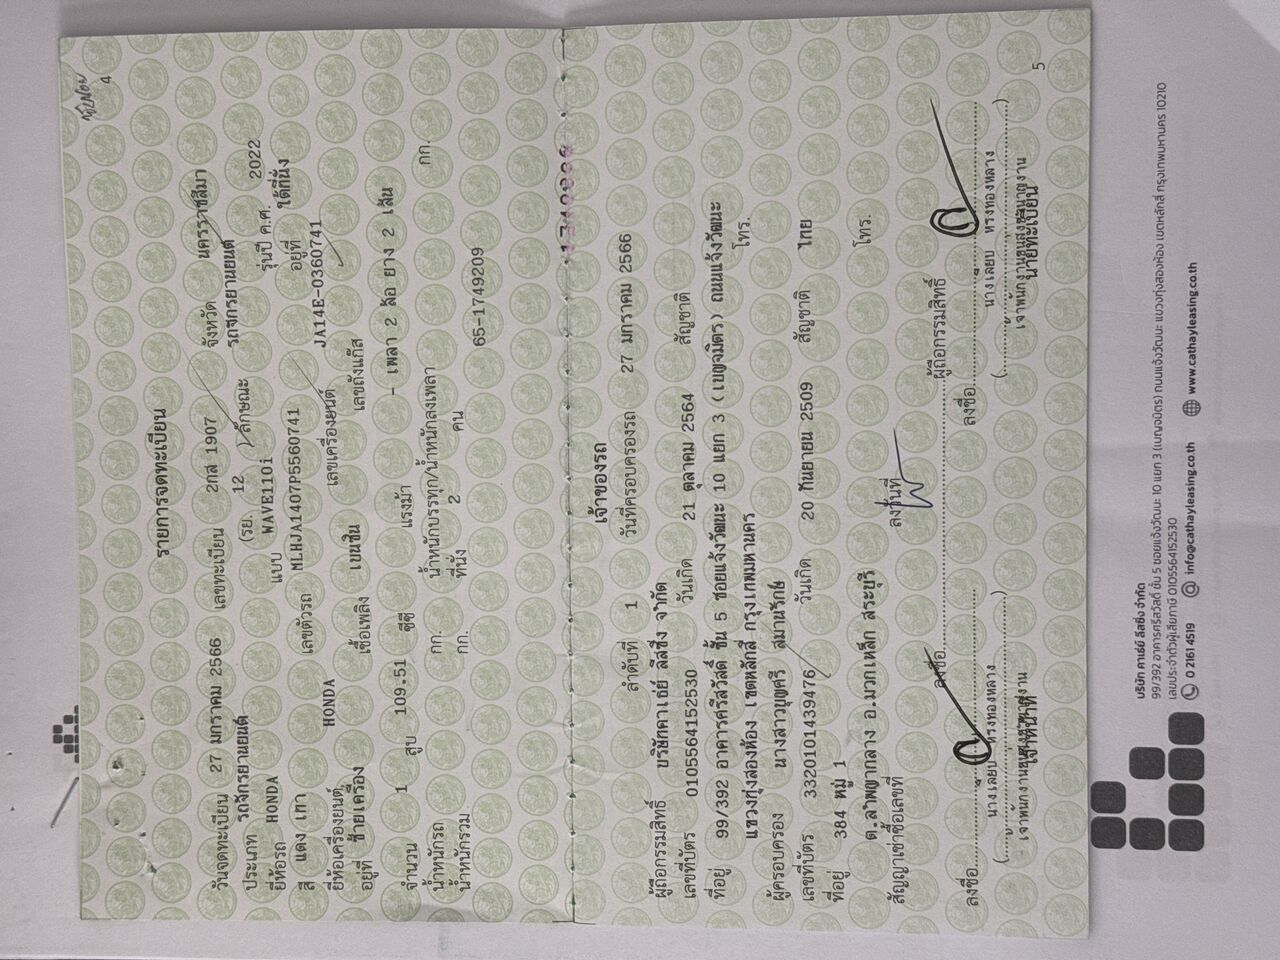 4
รายการจดทะเบียน
วันจดทะเบียน 27 มกราคม 2566 เลขทะเบียน 2กส 1907 จังหวัด นครราชสีมา
ประเภท รถจักรยานยนต์ (รย. 12 ) ลักษณะ รถจักรยานยนต์
ยี่ห้อรถ HONDA แบบ WAVE110i รุ่นปี ค.ศ. 2022
สี แดง เทา เลขตัวรถ MLHJA1407P5560741 อยู่ที่ ใต้ที่นั่ง
ยี่ห้อเครื่องยนต์ HONDA เลขเครื่องยนต์ JA14E-0360741
อยู่ที่ ซ้ายเครื่อง เชื้อเพลิง เบนซิน เลขถังแก๊ส
จำนวน 1 สูบ 109.51 ซีซี แรงม้า - เพลา 2 ล้อ ยาง 2 เส้น
น้ำหนักรถ กก. น้ำหนักบรรทุก/น้ำหนักลงเพลา กก.
น้ำหนักรวม กก. ที่นั่ง 2 คน
65-1749209
เจ้าของรถ
ลำดับที่ 1 วันที่ครอบครองรถ 27 มกราคม 2566
ผู้ถือกรรมสิทธิ์ บริษัทคาเธ่ย์ ลีสซิ่ง จำกัด
เลขที่บัตร 0105564152530 วันเกิด 21 ตุลาคม 2564 สัญชาติ
ที่อยู่ 99/392 อาคารศรีสวัสดิ์ ชั้น 5 ซอยแจ้งวัฒนะ 10 แยก 3 (เบญจมิตร) ถนนแจ้งวัฒนะ
แขวงทุ่งสองห้อง เขตหลักสี่ กรุงเทพมหานคร โทร.
ผู้ครอบครอง นางสาวบุญศรี สมานรักษ์
เลขที่บัตร 3320101439476 วันเกิด 20 กันยายน 2509 สัญชาติ ไทย
ที่อยู่ 384 หมู่ 1
ต.ลำพญากลาง อ.มวกเหล็ก สระบุรี โทร.
สัญญาเช่าซื้อเลขที่ ลงวันที่
ลงชื่อ ผู้ถือกรรมสิทธิ์
ลงชื่อ ลงชื่อ
นางเลียบ หรงทองหลาง นางเลียบ หรงทองหลาง
เจ้าหน้าที่ นายทะเบียน
5
บริษัท คาเธ่ย์ ลีสซิ่ง จำกัด
99/392 อาคารศรีสวัสดิ์ ชั้น 5 ซอยแจ้งวัฒนะ 10 แยก 3 (เบญจมิตร) ถนนแจ้งวัฒนะ แขวงทุ่งสองห้อง เขตหลักสี่ กรุงเทพมหานคร 10210
เลขประจำตัวผู้เสียภาษี 0105564152530
0 2161 4519 info@cathayleasing.co.th www.cathayleasing.co.th